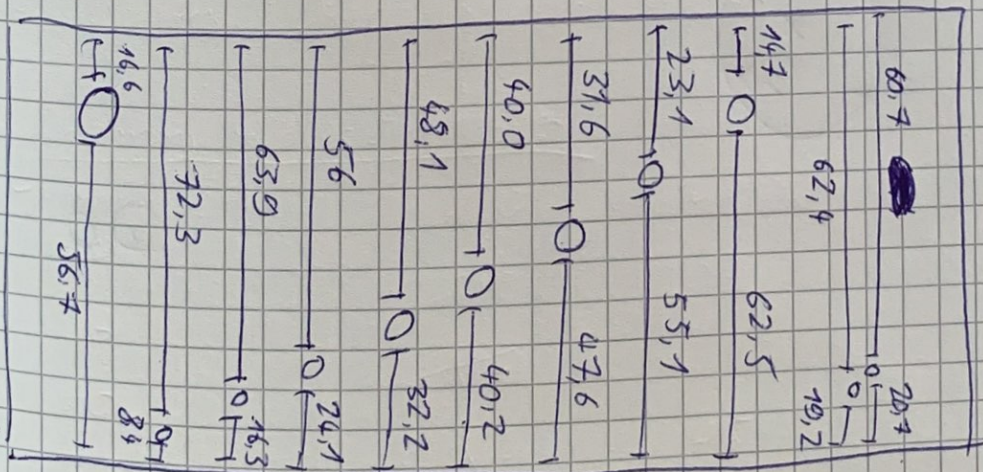 60,7 20,7
62,4 19,2
14,7 62,5
23,1 55,1
31,6 47,6
40,0 40,2
48,1 32,2
56 24,1
63,9 16,3
72,3 8,4
16,6 56,7